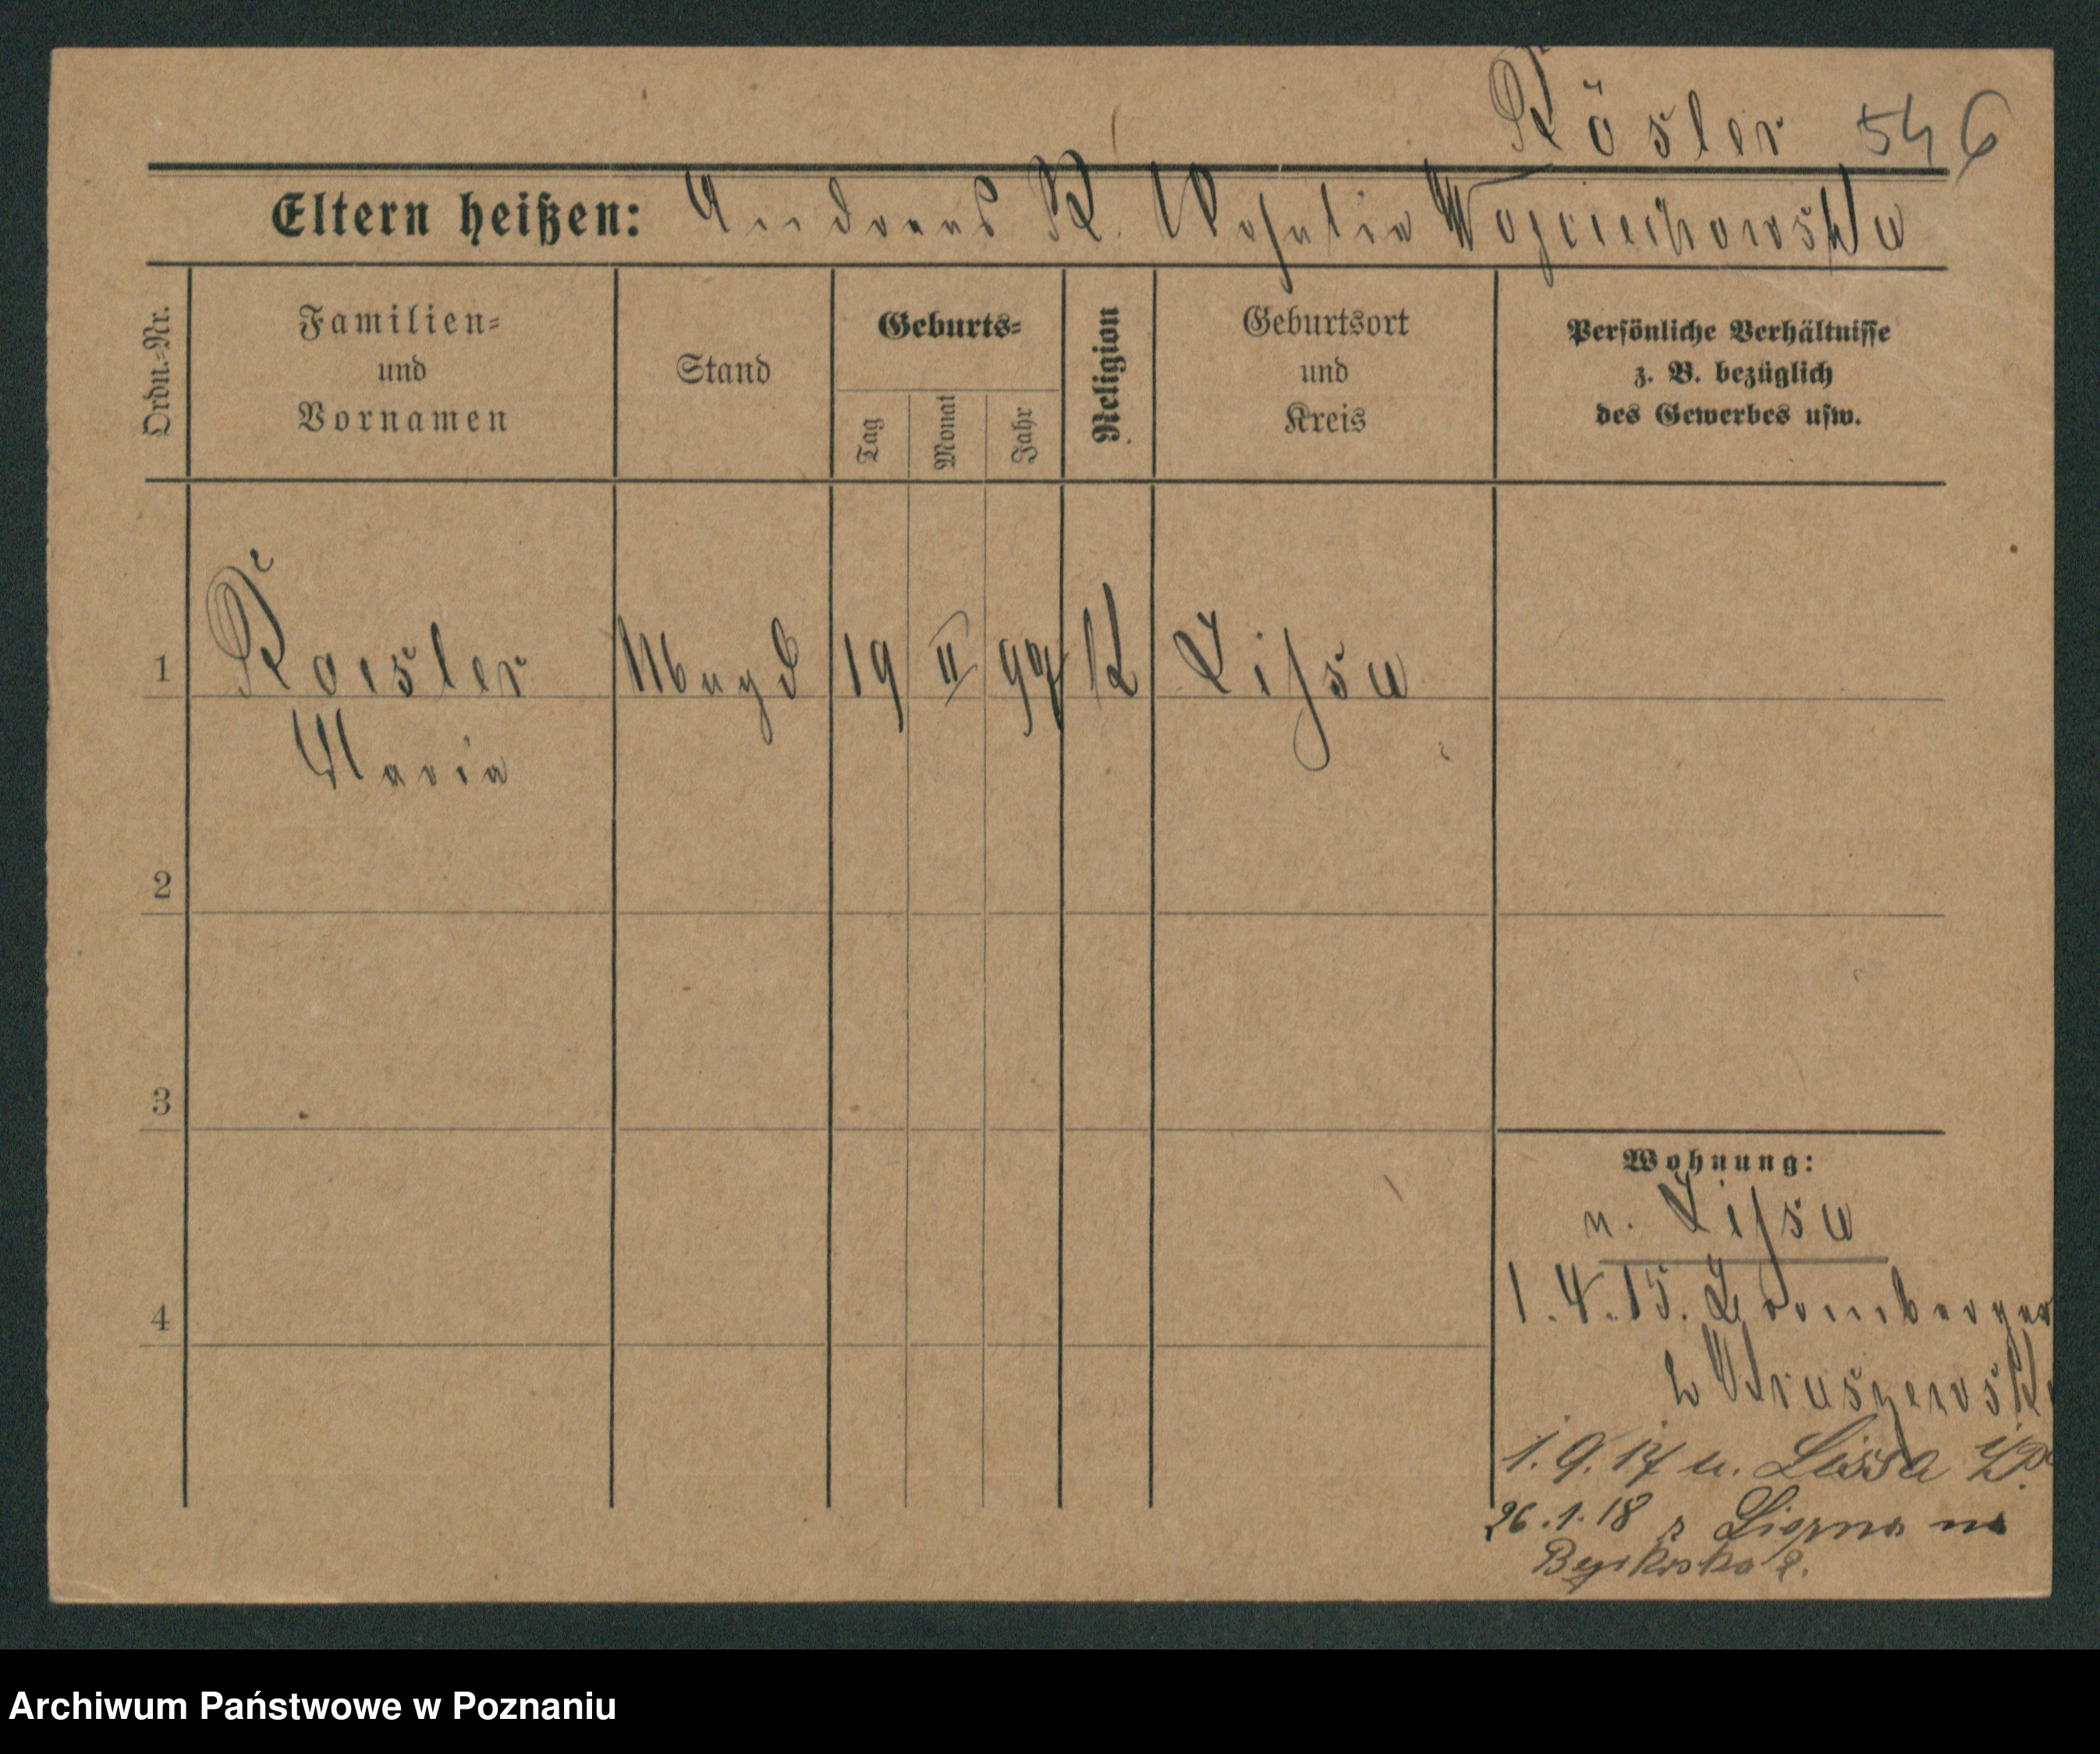 Rösler 546
Eltern heißen: Andreas R. Rosalia Wojciechowska
Ordn.-Nr.
Familien-
und
Vornamen
Stand
Geburts-
Tag
Monat
Jahr
Religion
Geburtsort
und
Kreis
Persönliche Verhältnisse
z. B. bezüglich
des Gewerbes usw.
1 Roesler Magd 19 II 97 K Lissa
Maria
2
3
4
Wohnung:
n. Lissa
1.4.15.
b
1.9.17 u. Lissa i/P.
26.1.18
Archiwum Państwowe w Poznaniu